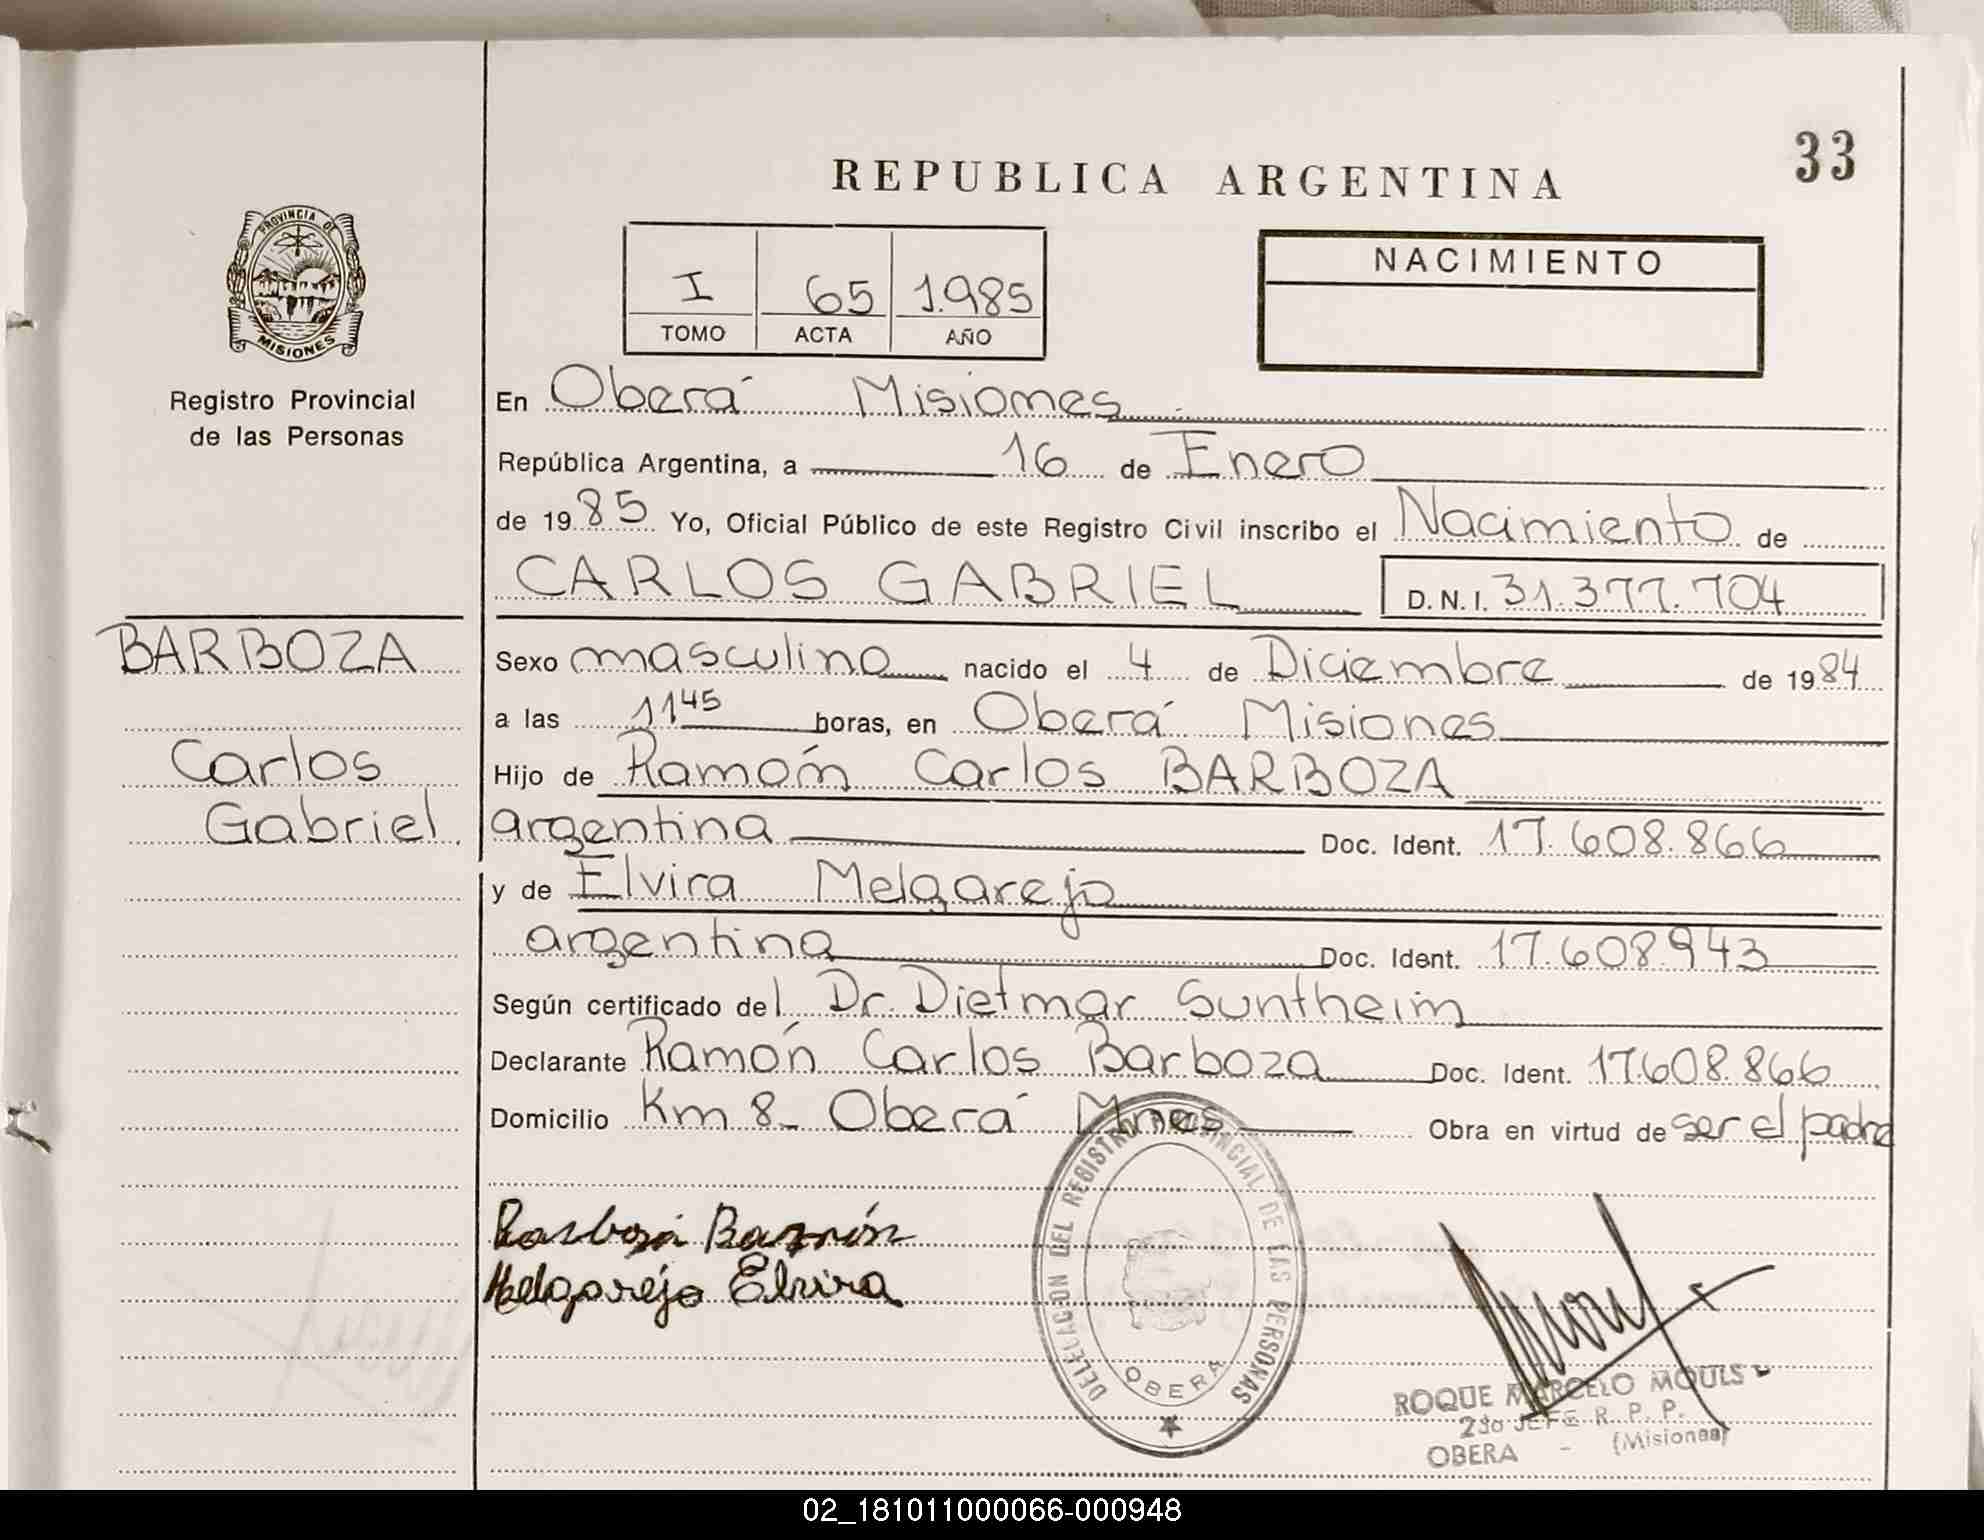 33
REPUBLICA ARGENTINA
PROVINCIA DE
MISIONES
Registro Provincial
de las Personas
I 65 1.985
TOMO ACTA AÑO
NACIMIENTO
En Oberá Misiones
República Argentina, a 16 de Enero
de 19 85 Yo, Oficial Público de este Registro Civil inscribo el Nacimiento de
CARLOS GABRIEL D.N.I. 31.377.704
BARBOZA
Carlos
Gabriel
Sexo masculino nacido el 4 de Diciembre de 19 84
a las 11 45 horas, en Oberá Misiones
Hijo de Ramón Carlos BARBOZA
argentina Doc. Ident. 17.608.866
y de Elvira Melgarejo
argentina Doc. Ident. 17.608.943
Según certificado del Dr. Dietmar Suntheim
Declarante Ramón Carlos Barboza Doc. Ident. 17.608.866
Domicilio Km 8 - Oberá Mnes Obra en virtud de ser el padre
Melgarejo Elvira
DELEGACION DEL REGISTRO PROVINCIAL DE LAS PERSONAS
OBERA
ROQUE MARCELO MOULS
2do JEFE R. P. P.
OBERA - (Misiones)
02_181011000066-000948